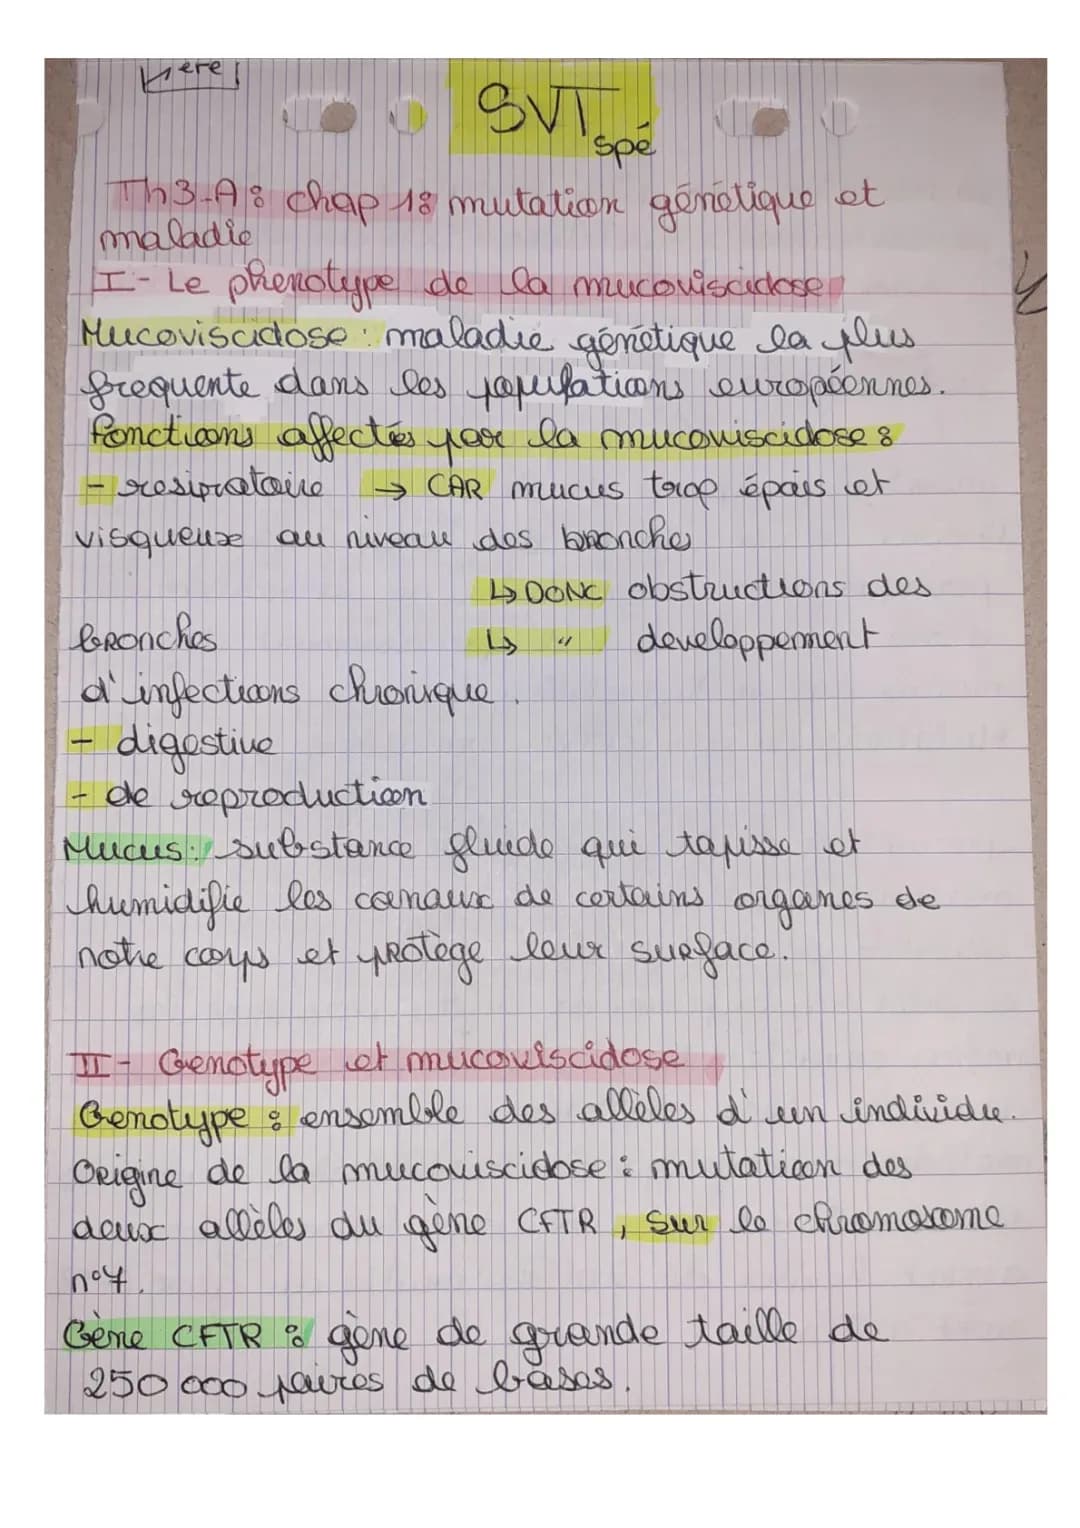 1ere
SVT spé
Th3-A : chap 1 : mutation génétique et
maladie
I - Le phenotype de la mucoviscidose
Mucoviscidose : maladie génétique la plus
frequente dans les populations européennes.
fonctions affectés par la mucoviscidose :
- respiratoire → CAR mucus trop épais et
visqueuse au niveau des bronches
↳ DONC obstructions des
bronches
↳ " developpement
d'infections chronique.
- digestive
- de reproduction
Mucus : substance fluide qui tapisse et
humidifie les canaux de certains organes de
notre corps et protège leur surface.
II - Genotype et mucoviscidose
Genotype : ensemble des allèles d'un individu.
Origine de la mucoviscidose : mutation des
deux allèles du gène CFTR, sur le chromosome
n°7.
Gène CFTR : gène de grande taille de
250 000 paires de bases.